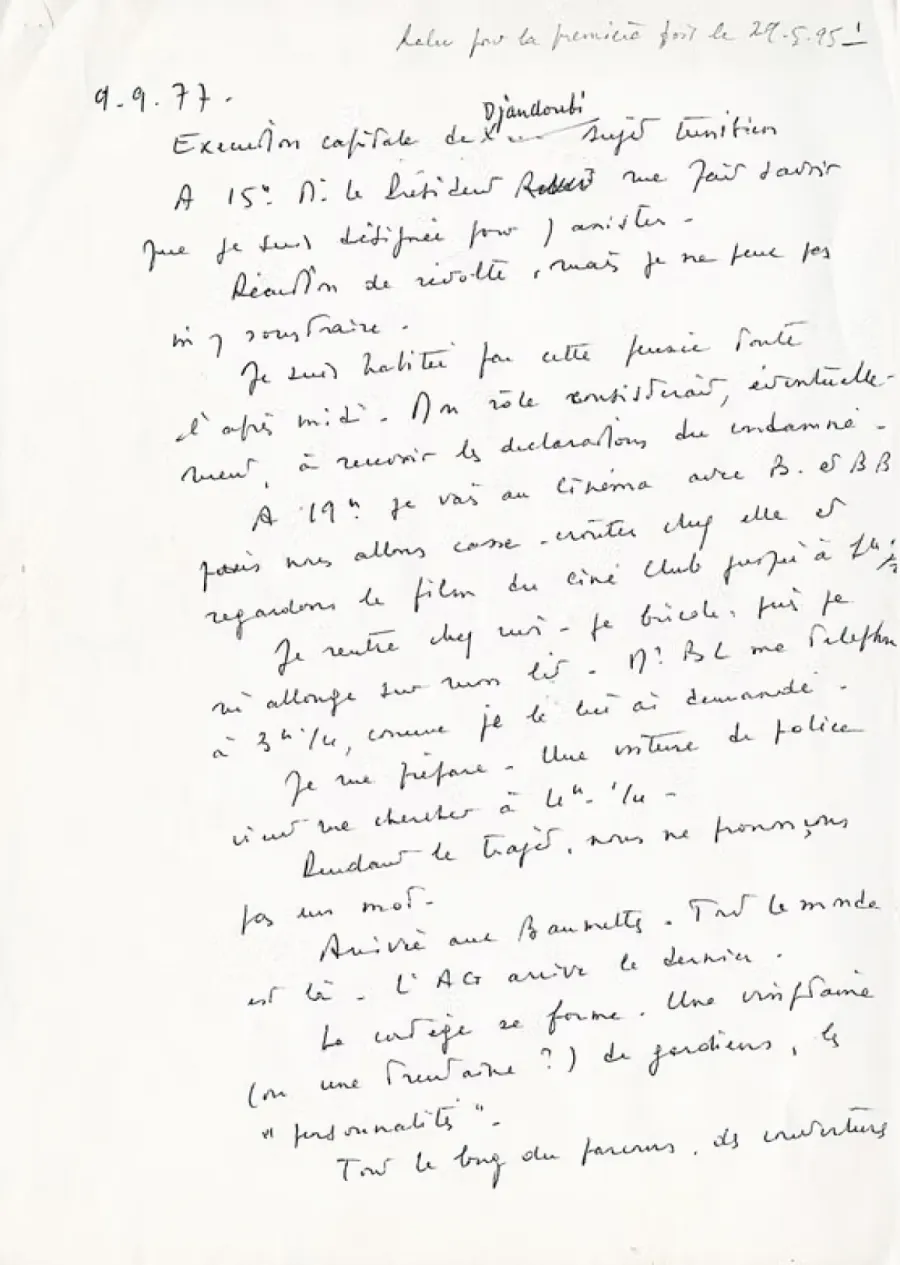 Relu pour la première fois le 29.5.95 !
9.9.77.
Djandoubi
Execution capitale de sujet tunisien
A 15h. M. le Président R me fait savoir
que je suis désignée pour y assister.
Réaction de révolte, mais je ne peux pas
m'y soustraire.
Je suis habitée par cette pensée toute
l'après midi. Mon rôle consisterait, éventuelle-
ment, à recevoir les déclarations du condamné.
A 19h. je vais au cinéma avec B. et BB
puis nous allons casse-crouter chez elle et
regardons le film du ciné Club jusqu'à 1h.
Je rentre chez moi. je bricole, puis je
m'allonge sur mon lit. Mr BL me telephone
à 3h.1/4, comme je le lui ai demandé.
Je me prépare. Une voiture de police
vient me chercher à 4h.1/4.
Pendant le trajet, nous ne prononçons
pas un mot.
Arrivée aux Baumettes. Tout le monde
est là. L'AG arrive le dernier.
Le cortège se forme. Une vingtaine
(ou une trentaine ?) de gardiens, les
"personnalités".
Tout le long du parcours, des couvertures